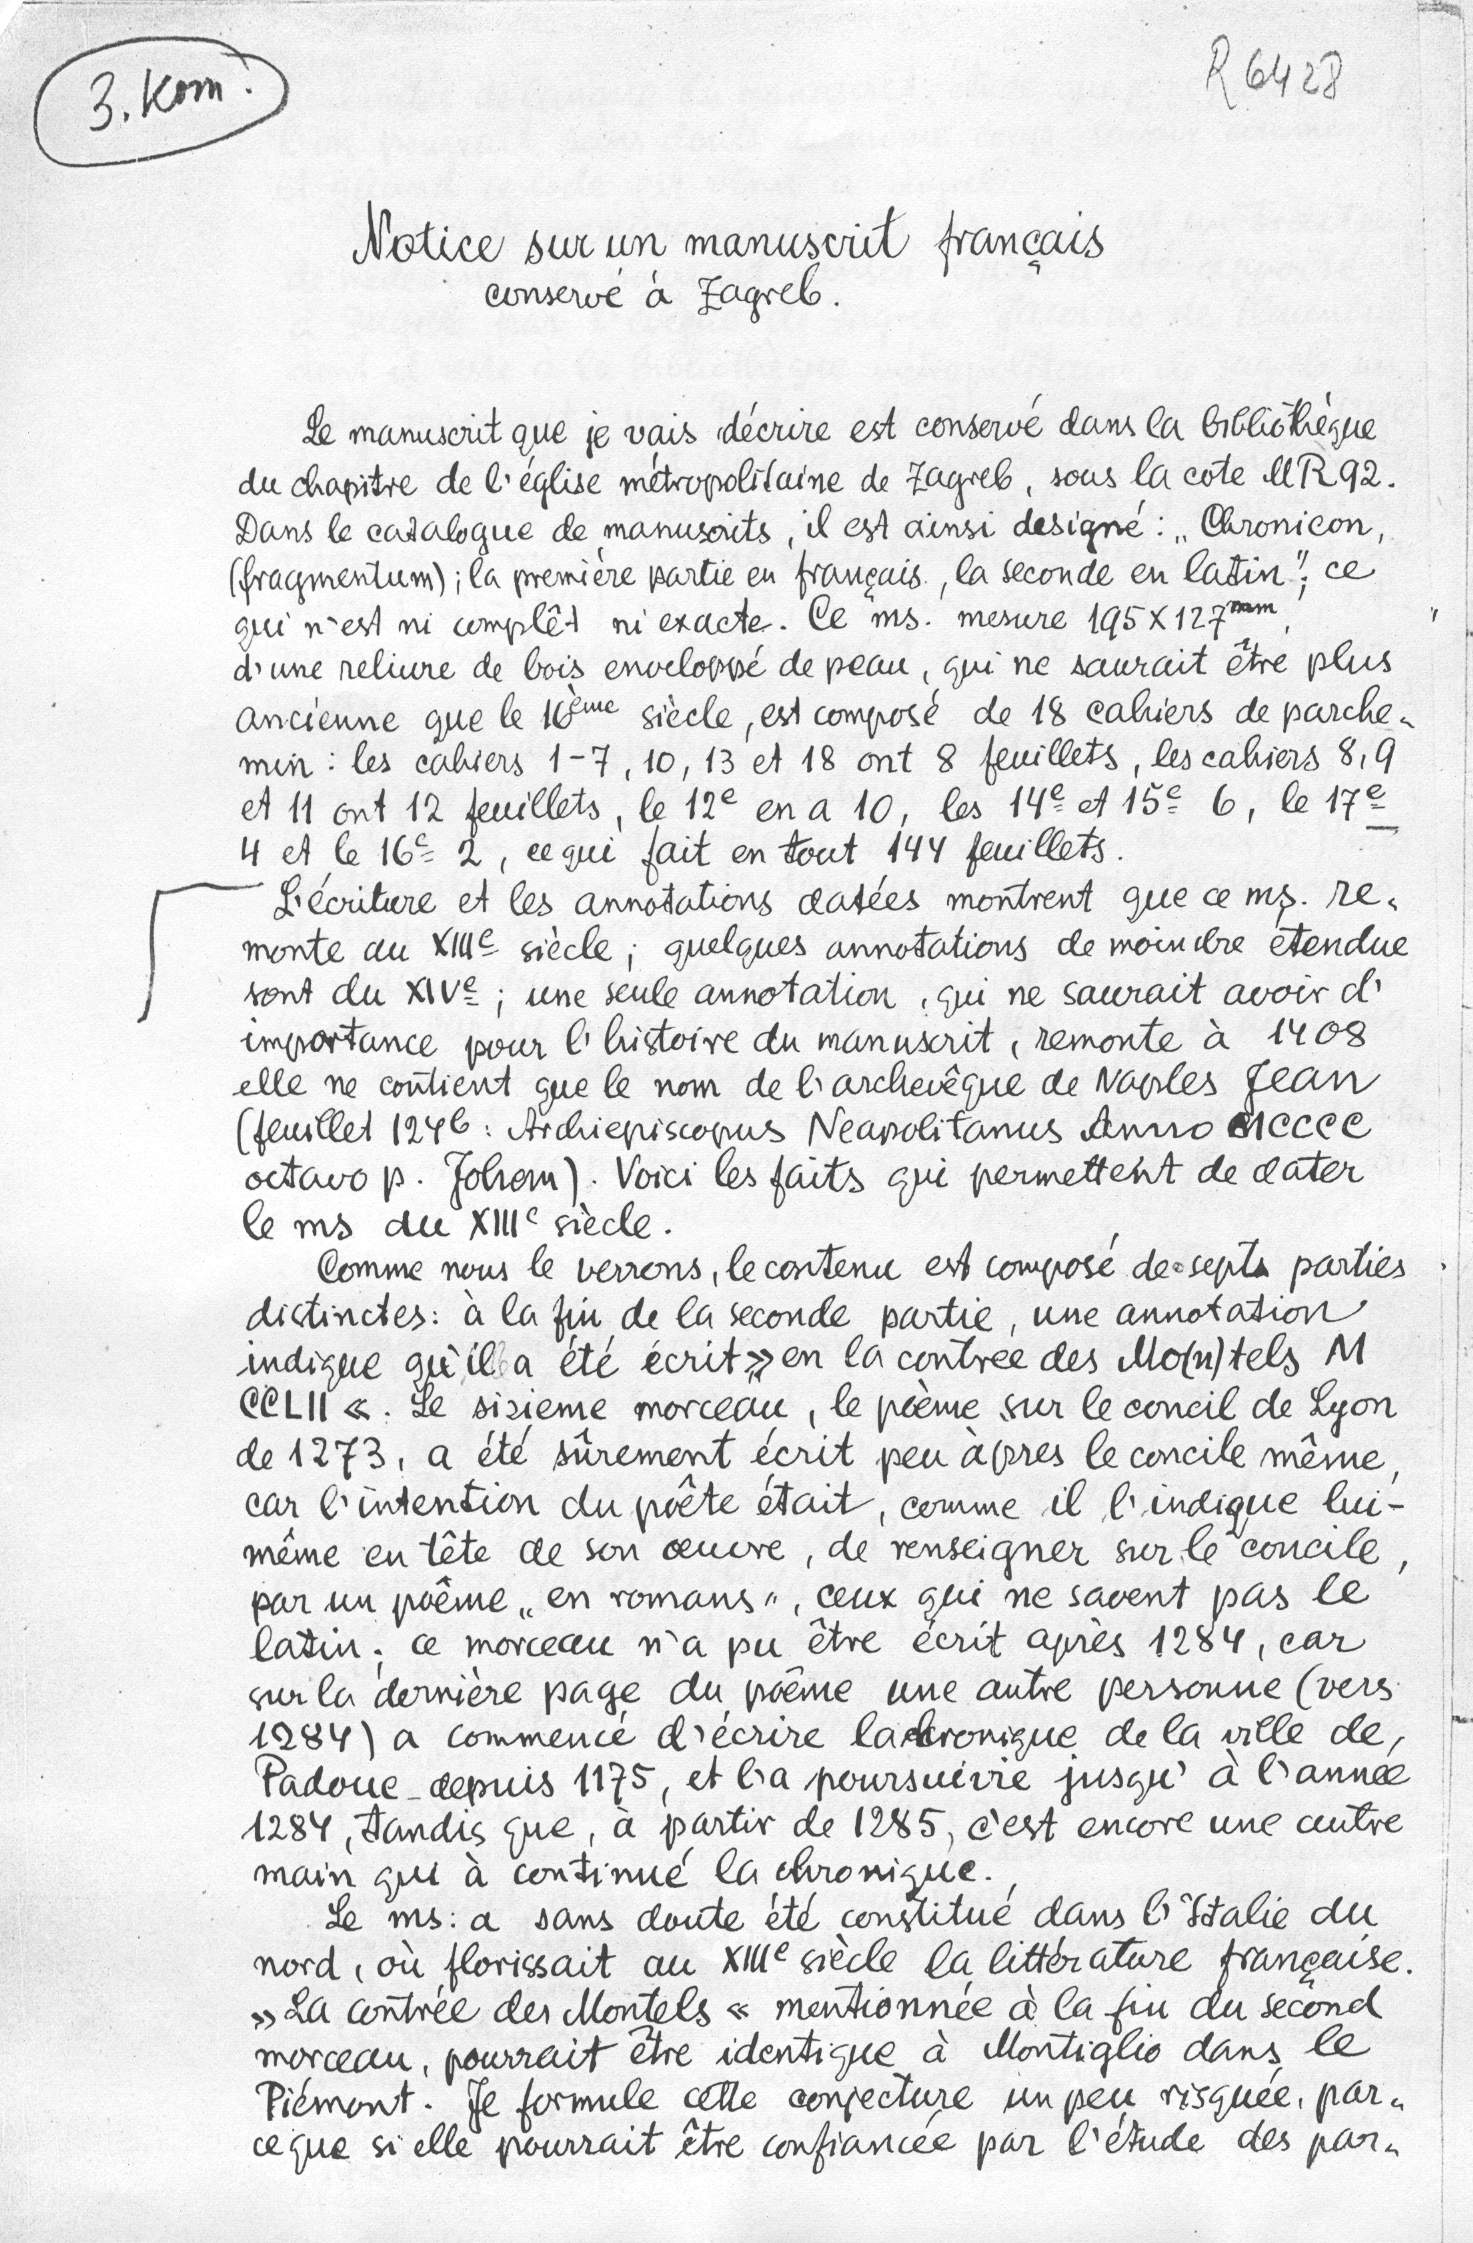 3. Kom!
R 6428
Notice sur un manuscrit français
conservé à Zagreb.
Le manuscrit que je vais décrire est conservé dans la bibliothèque
du chapitre de l'église métropolitaine de Zagreb, sous la cote MR 92.
Dans le catalogue de manuscrits, il est ainsi designé: „Chronicon,
(fragmentum); la première partie en français, la seconde en latin"; ce
qui n'est ni complêt ni exacte. Ce ms. mesure 195 x 127 mm,
d'une reliure de bois enveloppé de peau, qui ne saurait être plus
ancienne que le 16ème siècle, est composé de 18 cahiers de parche-
min: les cahiers 1-7, 10, 13 et 18 ont 8 feuillets, les cahiers 8, 9
et 11 ont 12 feuillets, le 12e en a 10, les 14e et 15e 6, le 17e
4 et le 16e 2, ce qui fait en tout 144 feuillets.
L'écriture et les annotations datées montrent que ce ms. re-
monte au XIIIe siècle; quelques annotations de moindre étendue
sont du XIVe; une seule annotation, qui ne saurait avoir d'
importance pour l'histoire du manuscrit, remonte à 1408
elle ne contient que le nom de l'archevêque de Naples Jean
(feuillet 124b: Archiepiscopus Neapolitanus Anno MCCCC
octavo p. Johem). Voici les faits qui permettent de dater
le ms du XIIIe siècle.
Comme nous le verrons, le contenu est composé de sept parties
distinctes: à la fin de la seconde partie, une annotation
indique qu'il a été écrit » en la contree des Mo(n)tels M
CCLII «. Le sizieme morceau, le pòème sur le concil de Lyon
de 1273, a été sûrement écrit peu àpres le concile même,
car l'intention du poête était, comme il l'indique lui-
même en tête de son œuvre, de renseigner sur le concile,
par un poême „en romans", ceux qui ne savent pas le
latin; ce morceau n'a pu être écrit après 1284, car
sur la dernière page du poême une autre personne (vers
1284) a commencé d'écrire la chronique de la ville de,
Padoue depuis 1175, et l'a poursuivie jusqu'à l'année
1284, tandis que, à partir de 1285, c'est encore une autre
main qui à continué la chronique.
Le ms: a sans doute été constitué dans l'Italie du
nord, où florissait au XIIIe siècle la littérature française.
» La contrée des Montels « mentionnée à la fin du second
morceau, pourrait être identique à Montiglio dans le
Piémont. Je formule cette conjecture un peu risquée, par-
ce que si elle pourrait être confiancée par l'étude des par-